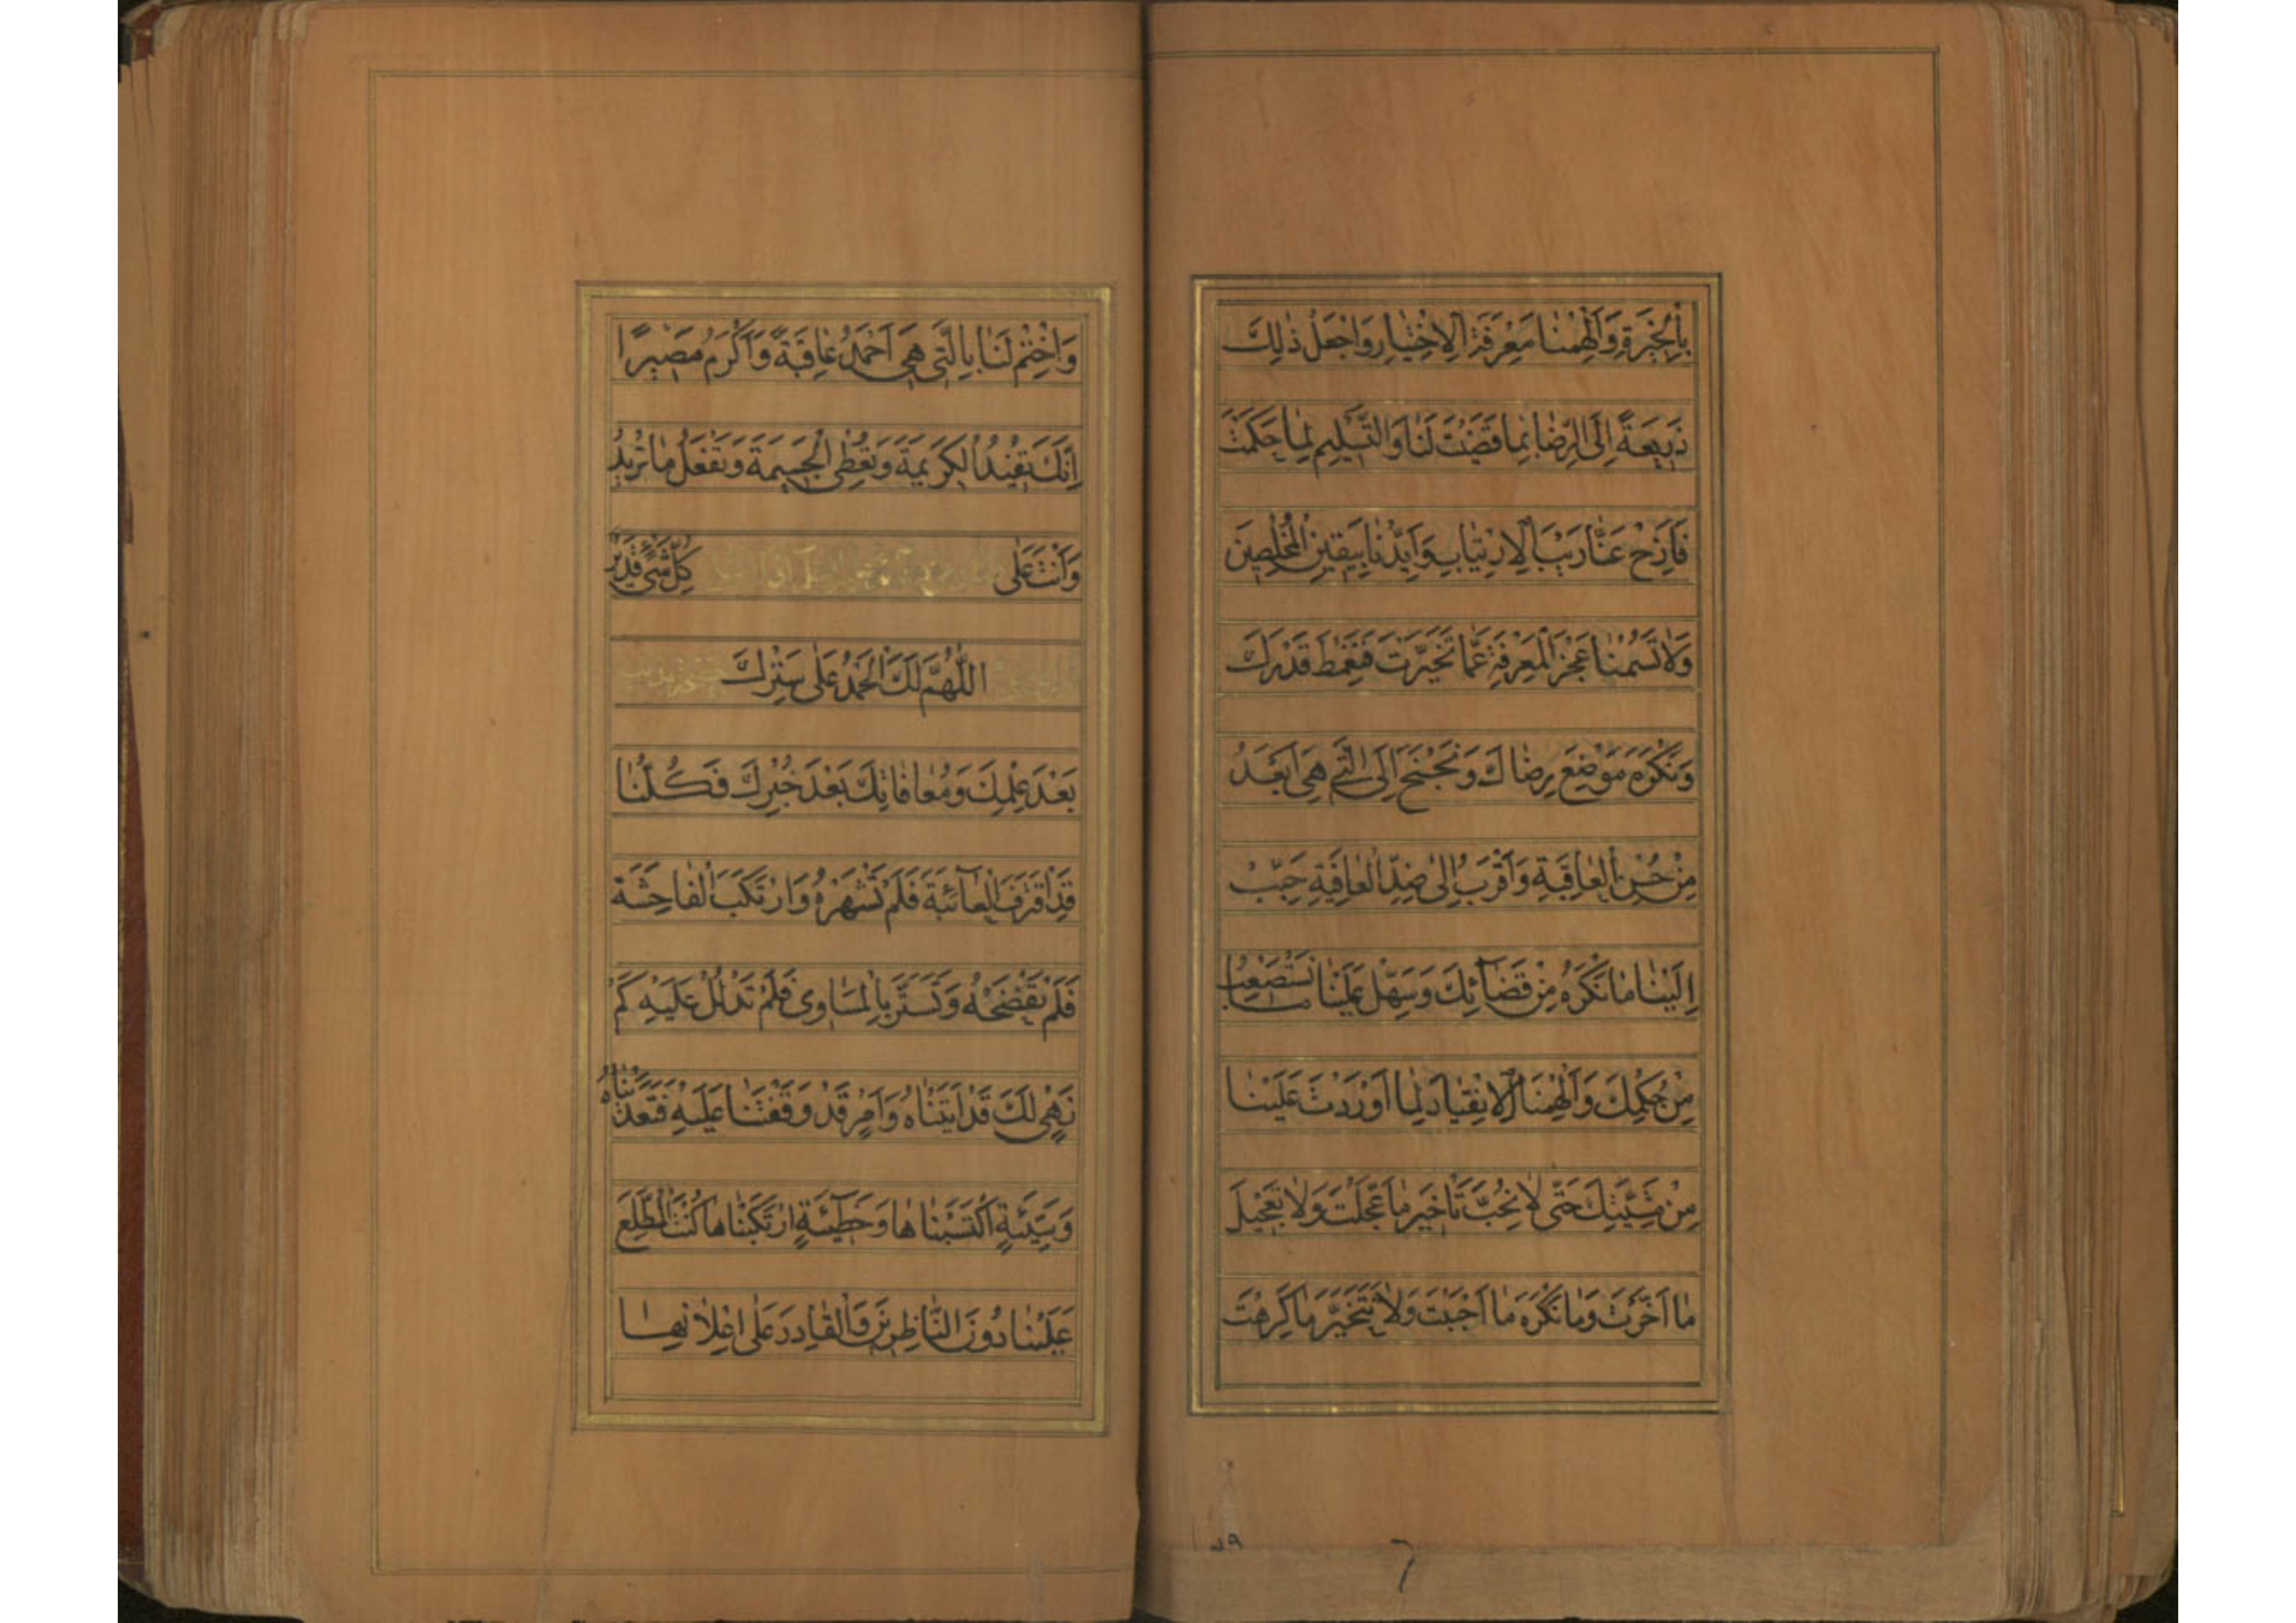 بِالْخِيَرَةِ وَاَلْهِمْنَا مَعْرِفَةَ الْاِخْتِيَارِ وَاجْعَلْ ذٰلِكَ
ذَرِيعَةً اِلَى الرِّضَا بِمَا قَضَيْتَ لَنَا وَالتَّسْلِيمِ لِمَا حَكَمْتَ
فَاَزِحْ عَنَّا رَيْبَ الْاِرْتِيَابِ وَاَيِّدْنَا بِيَقِينِ الْمُخْلِصِينَ
وَلَا تَسُمْنَا عَجْزَ الْمَعْرِفَةِ عَمَّا تَخَيَّرْتَ فَنَغْمِطَ قَدْرَكَ
وَنَكْرَهَ مَوْضِعَ رِضَاكَ وَنَجْنَحَ اِلَى الَّتِي هِيَ اَبْعَدُ
مِنْ حُسْنِ الْعَاقِبَةِ وَاَقْرَبُ اِلٰى ضِدِّ الْعَافِيَةِ حَبِّبْ
اِلَيْنَا مَا نَكْرَهُ مِنْ قَضَآئِكَ وَسَهِّلْ عَلَيْنَا مَا نَسْتَصْعِبُ
مِنْ حُكْمِكَ وَاَلْهِمْنَا الْاِنْقِيَادَ لِمَا اَوْرَدْتَ عَلَيْنَا
مِنْ مَشِيَّتِكَ حَتّٰى لَا نُحِبَّ تَأْخِيرَ مَا عَجَّلْتَ وَلَا تَعْجِيلَ
مَا اَخَّرْتَ وَمَا نَكْرَهَ مَا اَحْبَبْتَ وَلَا نَتَخَيَّرَ مَا كَرِهْتَ
وَاخْتِمْ لَنَا بِالَّتِي هِيَ اَحْمَدُ عَاقِبَةً وَاَكْرَمُ مَصِيرًا
اِنَّكَ تُفِيدُ الْكَرِيمَةَ وَتُعْطِي الْجَسِيمَةَ وَتَفْعَلُ مَا تُرِيدُ
وَاَنْتَ عَلٰى كُلِّ شَيْءٍ قَدِيرٌ
اَللّٰهُمَّ لَكَ الْحَمْدُ عَلٰى سَتْرِكَ
بَعْدَ عِلْمِكَ وَمُعَافَاتِكَ بَعْدَ خُبْرِكَ فَكُلُّنَا
قَدِ اقْتَرَفَ الْعَآئِبَةَ فَلَمْ تَشْهَرْهُ وَارْتَكَبَ الْفَاحِشَةَ
فَلَمْ تَفْضَحْهُ وَتَسَتَّرَ بِالْمَسَاوِي فَلَمْ تَدْلُلْ عَلَيْهِ كَمْ
نَهْيٍ لَكَ قَدْ اَتَيْنَاهُ وَاَمْرٍ قَدْ وَقَفْتَنَا عَلَيْهِ فَتَعَدَّيْنَاهُ
وَسَيِّئَةٍ اكْتَسَبْنَاهَا وَخَطِيئَةٍ ارْتَكَبْنَاهَا كُنْتَ الْمُطَّلِعَ
عَلَيْنَا دُونَ النَّاظِرِينَ وَالْقَادِرَ عَلٰى اِعْلَانِهَا